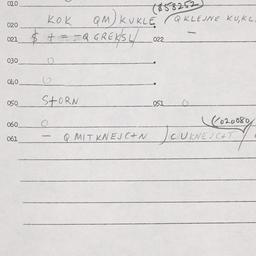 010
(853252)
020 KOK QM) KUKLE (QKLEJNE KUKL
021 $ + = = Q GREKSL/ 022 —
030 0
040 0
050 STORN 051 0
060 0 (020080)
061 — Q MITKNEJC+N )CUKNEJC+T/